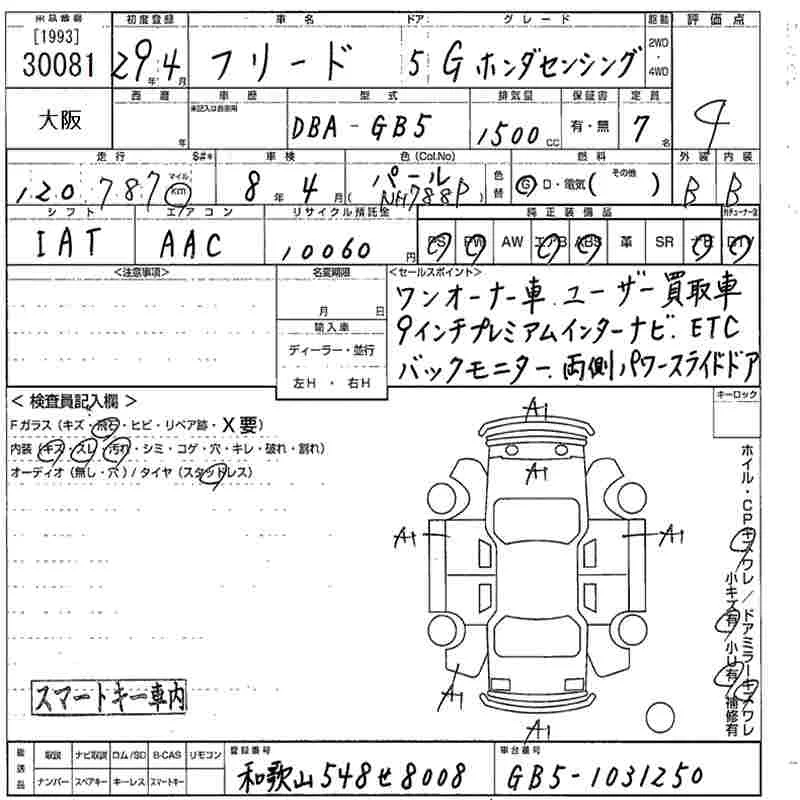 出品番号 初度登録 車名 ドア グレード 駆動 評価点
[1993]
30081 29年4月 フリード 5 G ホンダセンシング 2WD・4WD 4
大阪 西暦 年 車歴 未記入は自家用 型式 DBA-GB5 排気量 1500cc 保証書 有・無 定員 7名
走行 S#* 車検 色(Col.No) 燃料 外装 内装
120787 マイル km 8年4月 パール (NH788P) 色替 G・D・電気( その他 ) B B
シフト エアコン リサイクル預託金 純正装備品
IAT AAC 10060円 PS PW AW エアB ABS 革 SR ナビ DTV
<注意事項> 名変期限 <セールスポイント>
月 日 ワンオーナー車.ユーザー買取車
輸入車 9インチプレミアムインターナビ.ETC
ディーラー・並行 バックモニター.両側パワースライドドア
左H・右H
<検査員記入欄> キーロック
Fガラス(キズ・飛石・ヒビ・リペア跡・X要)
内装(キズ・スレ・汚れ・シミ・コゲ・穴・キレ・破れ・割れ)
オーディオ(無し・穴)/タイヤ(スタッドレス)
A1
A1
A1 A1
A1
A1
ホイル・CPキズワレ/ドアミラーキズワレ
小キズ有/小U有/補修有
スマートキー車内
後送品 取説 ナビ取説 ロム/SD B-CAS リモコン 登録番号 車台番号
ナンバー スペアキー キーレス スマートキー 和歌山548せ8008 GB5-1031250